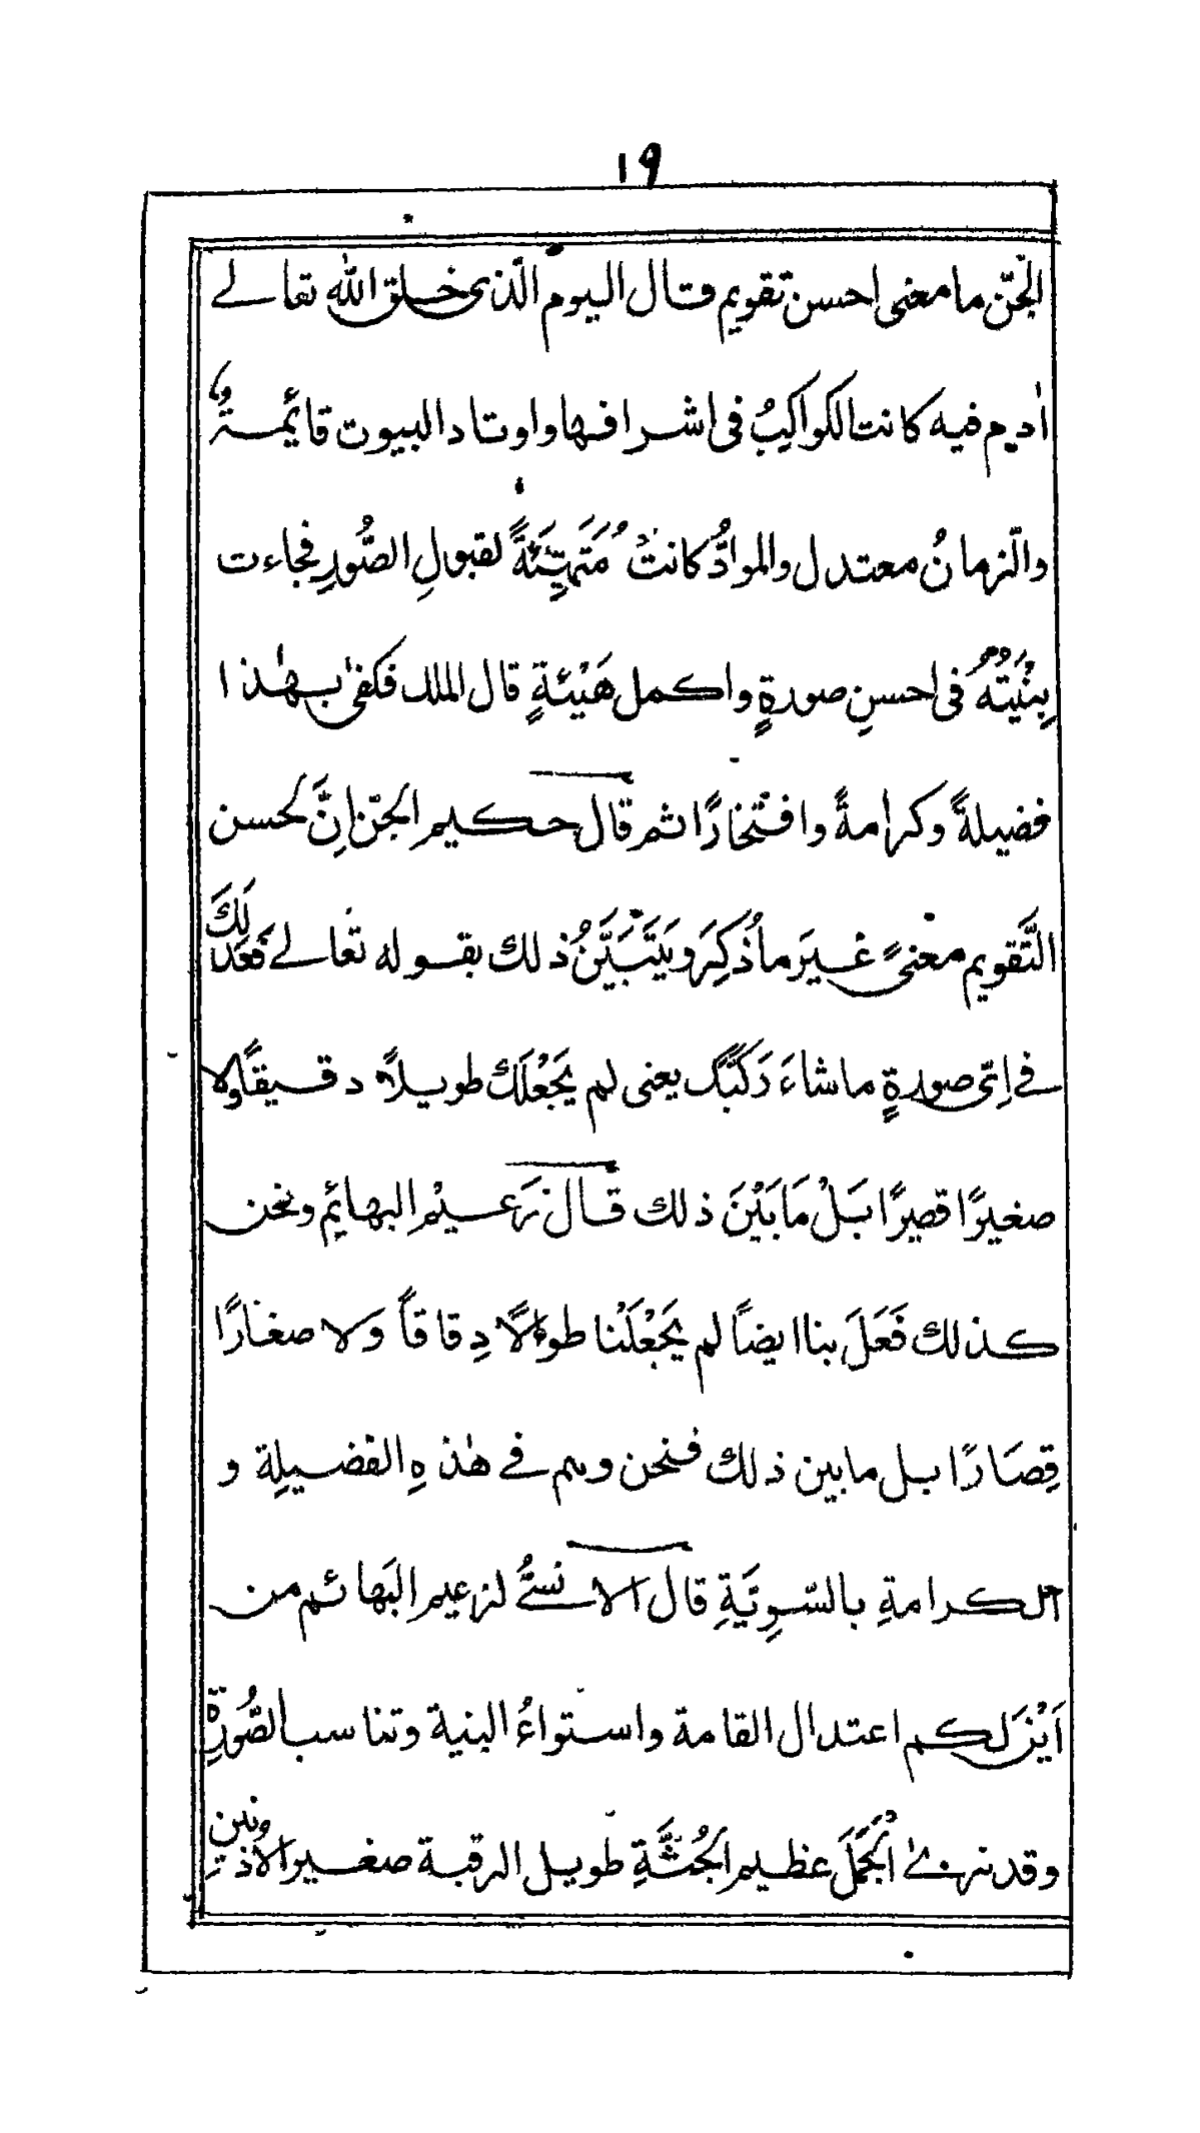 ١٩
الجنّ ما معنى احسن تقويم قال اليوم الّذى خلق الله تعالے
اٰدم فيه كانت الكواكبُ فى اشرافها واوتاد البيوت قائمةٌ
والّزمانُ معتدل والموادُّ كانتْ مُتَهيِّئَةً لقبولِ الصُّورِ فجاءت
بِنْيَتُهُ فى احسنِ صورةٍ واكمل هَيْئةٍ قال الملك فكفىٰ بهٰذا
فضيلةً وكرامةً وافتخارًا ثم قال حكيم الجنّ اِنَّ لحسن
التَّقويم معنىً غيرَ ماذُكِرَ ويَتَبَيَّنُ ذلك بقوله تعالے فَعَدَلَكَ
فے اىّ صورةٍ ماشاءَ رَكَّبَك يعنى لم يَجْعَلْكَ طويلاً دقيقًا ولا
صغيرًا قصيرًا بَلْ مَا بَيْنَ ذلك قال زَعيْم البهائِم ونحن
كذلك فَعَلَ بنا ايضاً لم يَجْعَلْنا طوالًا دِقاقاً ولا صغارًا
قِصَارًا بل مابين ذلك فنحن وهم فے هٰذهِ الفضيلِة و
الكرامةِ بالسّوِيَّةِ قال الانسىُّ لزعيم البَهائم من
اَيْنَ لكم اعتدال القامة واستواءُ البنية وتناسب الصُّورةِ
وقد نرىٰ الْجَمَلَ عظيم الجُثَّةِ طويل الرقبة صغير الاذنين